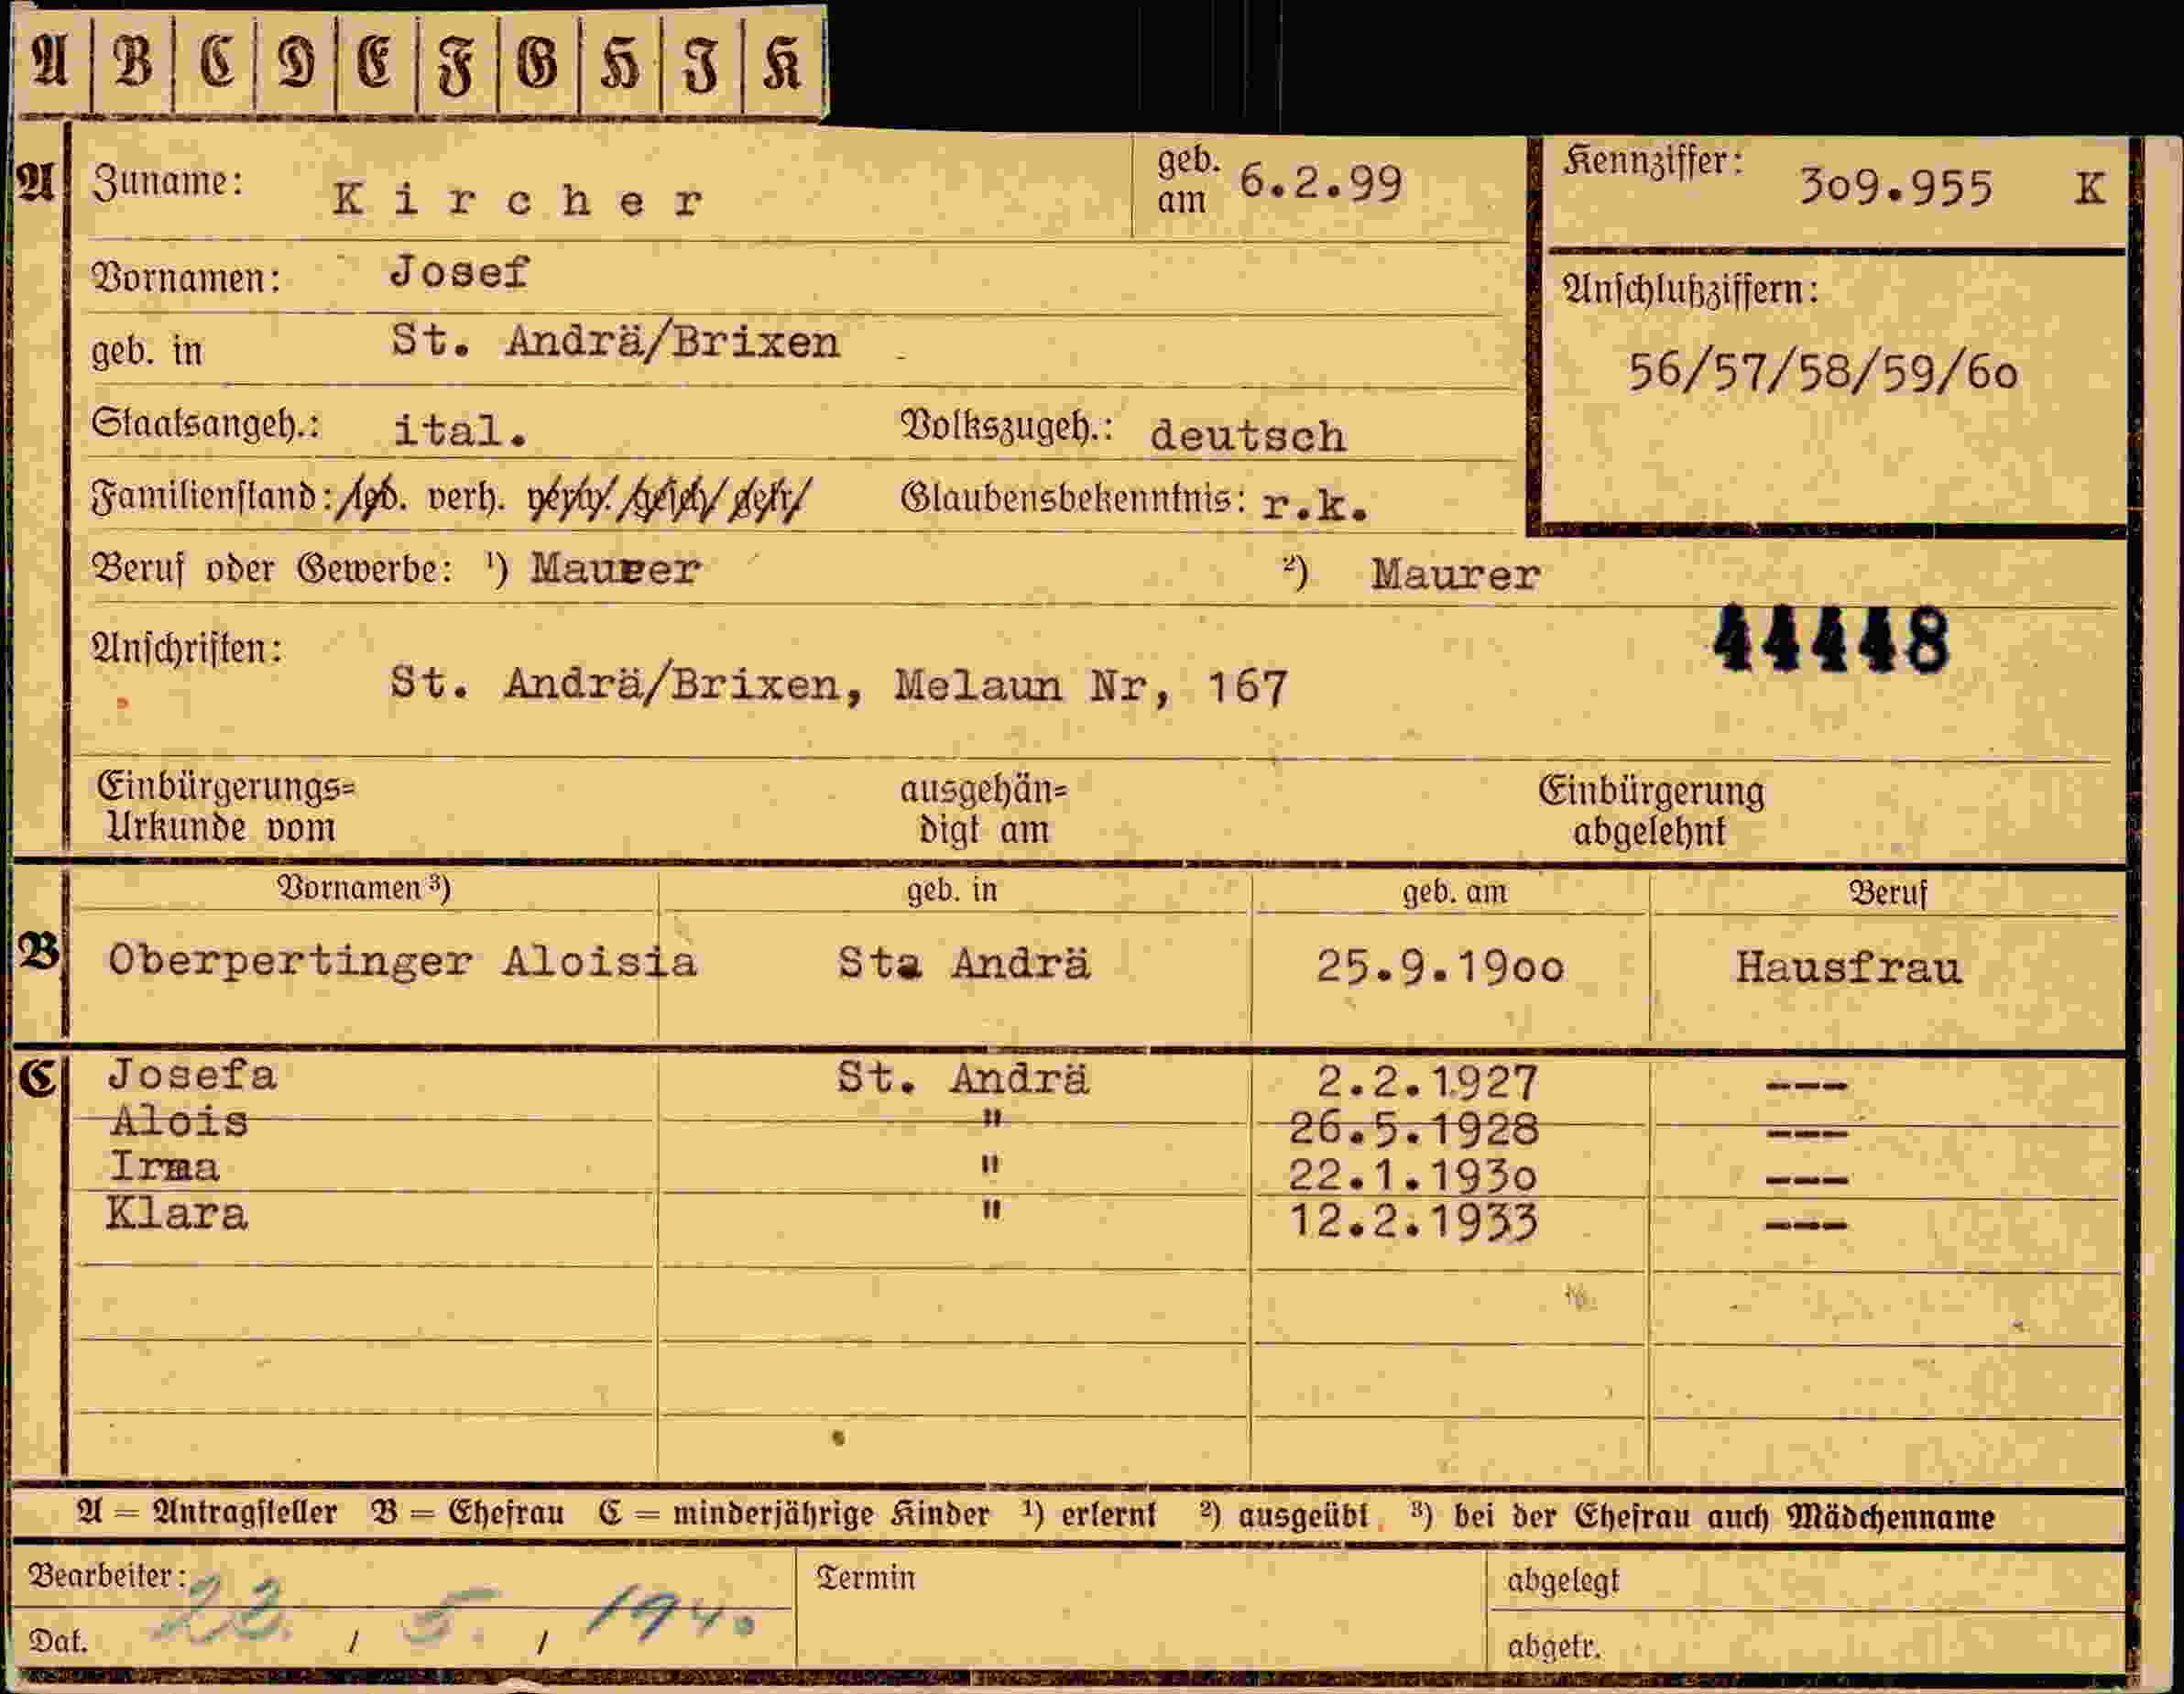 A B C D E F G H I K
A Zuname: Kircher geb. am 6.2.99 Kennziffer: 309.955 K
Vornamen: Josef
Anschlußziffern:
geb. in St. Andrä/Brixen
56/57/58/59/60
Staatsangeh.: ital. Volkszugeh.: deutsch
Familienstand: led. verh. verw. gesch. getr. Glaubensbekenntnis: r.k.
Beruf oder Gewerbe: ¹) Maurer ²) Maurer
44448
Anschriften:
St. Andrä/Brixen, Melaun Nr, 167
Einbürgerungs= ausgehän= Einbürgerung
Urkunde vom digt am abgelehnt
Vornamen ³) geb. in geb. am Beruf
B Oberpertinger Aloisia Sta Andrä 25.9.1900 Hausfrau
C Josefa St. Andrä 2.2.1927 ---
Alois " 26.5.1928 ---
Irma " 22.1.1930 ---
Klara " 12.2.1933 ---
A = Antragsteller B = Ehefrau C = minderjährige Kinder ¹) erlernt ²) ausgeübt ³) bei der Ehefrau auch Mädchenname
Bearbeiter: Termin abgelegt
Dat. 23. / 5. / 1940 abgetr.